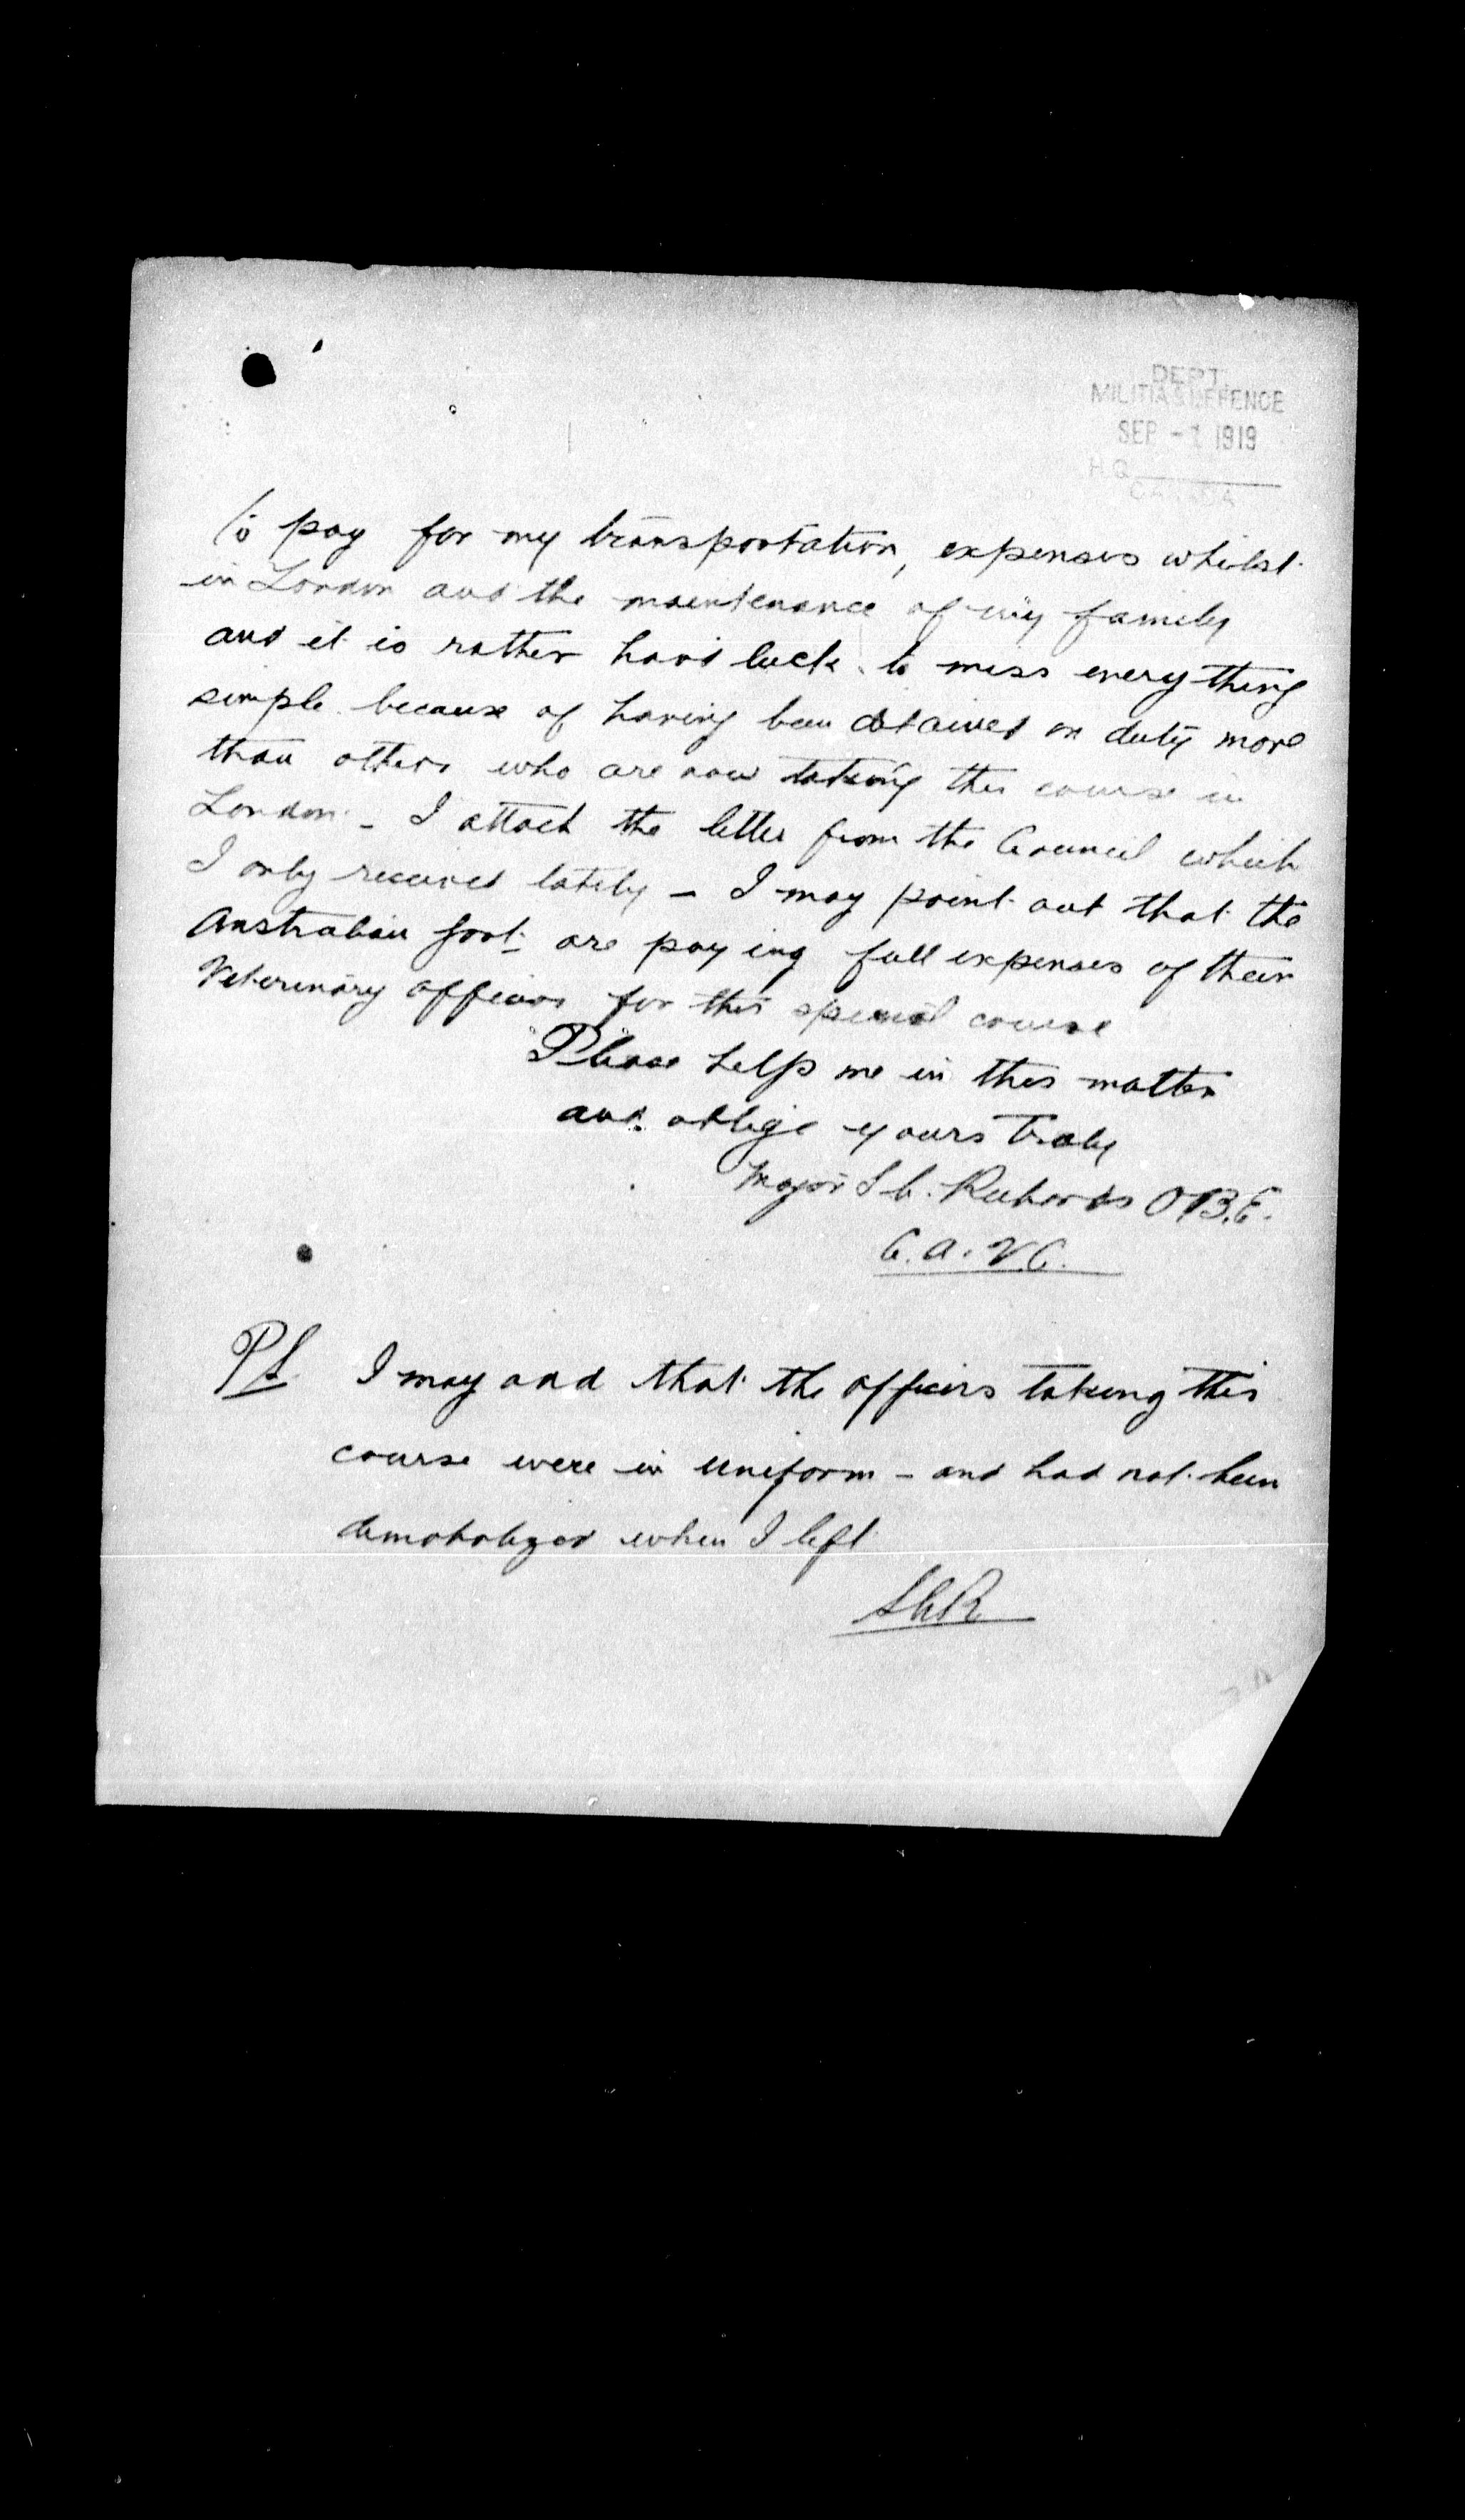 DEPT.
MILITIA & DEFENCE
SEP - 1919
H.Q.
CANADA
to pay for my transportation, expenses whilst
in London and the maintenance of my family
and it is rather hard luck to miss everything
simple because of having been detained on duty more
than others who are now taking this course in
London - I attach the letter from the Council which
I only received lately - I may point out that the
Australian Govt are paying full expenses of their
Veterinary officers for this special course
Please help me in this matter
and oblige yours truly
Major S C. Richards O.B.E.
C.A.V.C.
PS I may add that the officers taking this
course were in uniform - and had not been
demobolized when I left
SCR